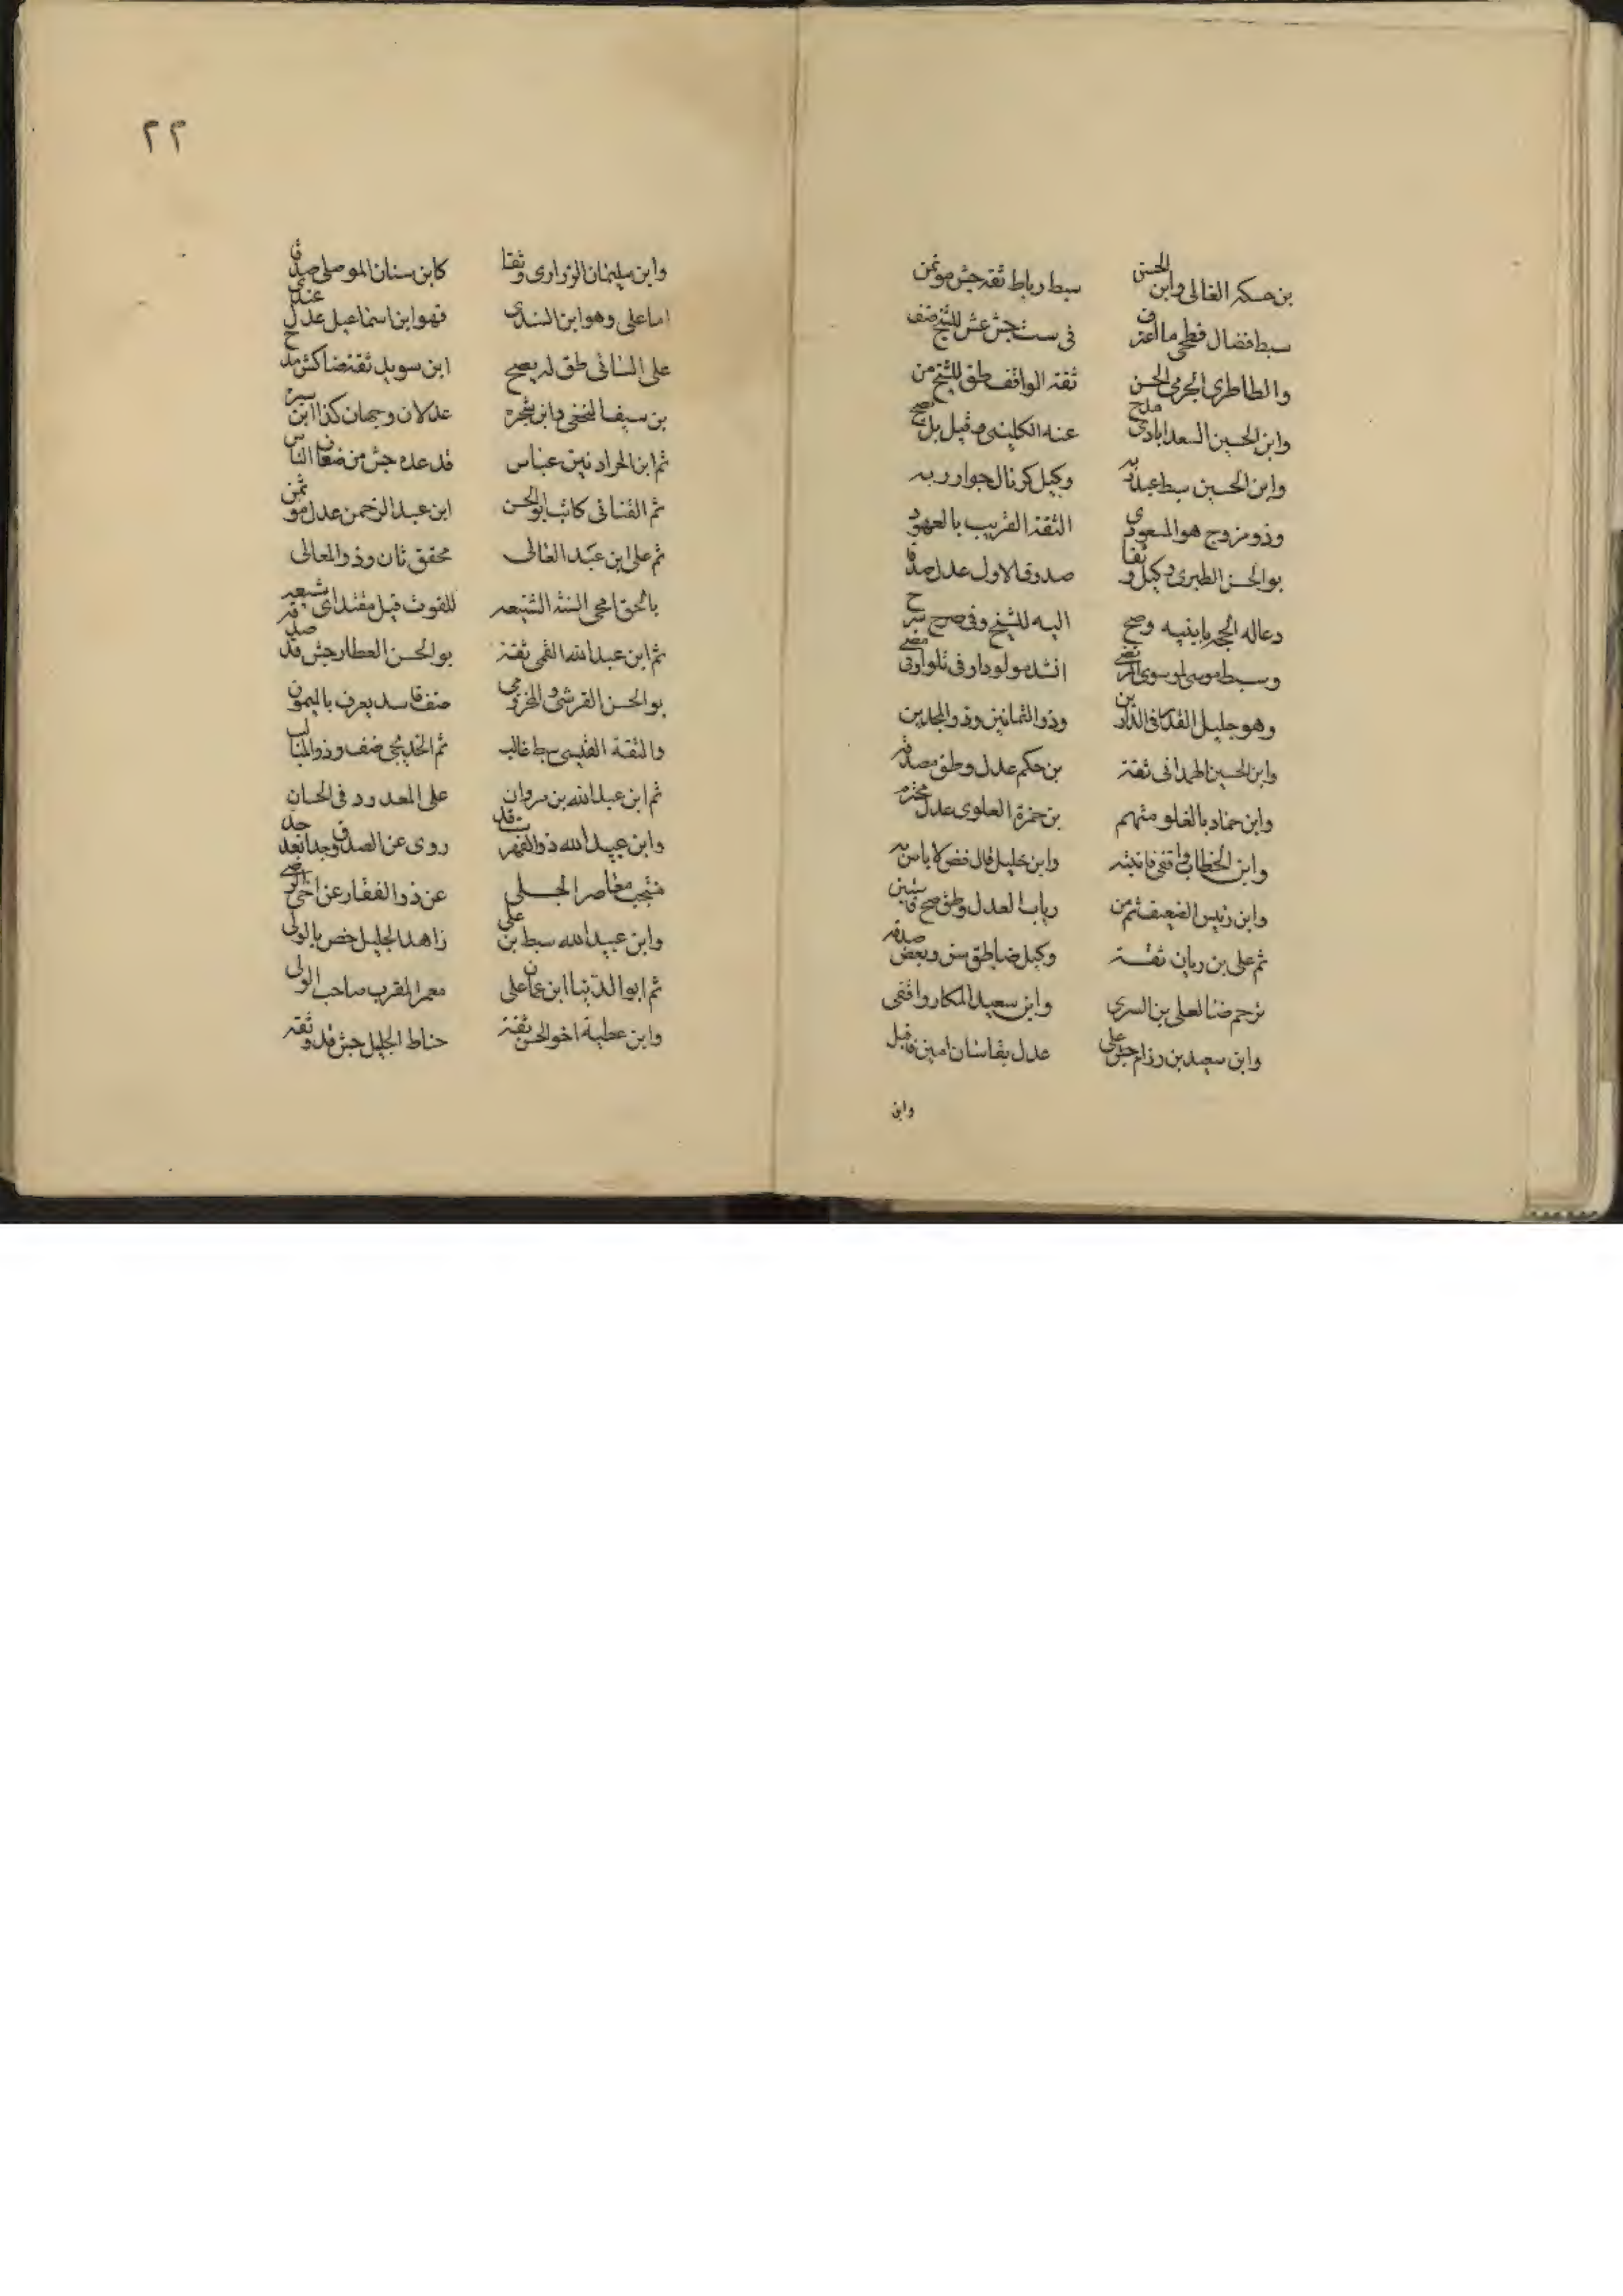 بن حسكه الغالى وابن الحسن سبط رباط ثقة جش موتمن
سبط فضال فطحى ما اعترف فى ست جش عش للشيخ ضف
والطاطرى الجرمى الحسن ثقة الواقف طق للشيخ من
وابن الحسين السعدابادى مدح عنه الكلينى وقيل بل صح
وابن الحسين سبط عبدربه وكيل كر نال جوار ربه
وذو مزوج هو المسعودى الثقة القريب بالعهود
بو الحسن الطبرى وكيل وثقا صدوقا الاول عدل صدقا
دعا له الحجة بابنيه وصح اليه للشيخ وفى صرح
وسبط موسى الموسوى المرتضى انشد مولودا وفى تلو
وهو جليل القدر فى الدارين وذو الثمانين وذو المجدين
وابن الحسين الهمدانى ثقة بن حكم عدل وطق مصدقه
وابن حماد بالغلو متهم بن حمزة العلوى عدل محترم
وابن الخطاب واقفى فانتبه وابن خليل قال فض لا باس به
وابن رئيس الضعيف ثم من رباب العدل وطق صح
ثم على بن ريان ثقة وكيل ضا طق سن وبعض صدقه
ترحم ضا لعلى بن السرى وابن سعيد المكار واقفى
وابن سعيد بن رزام جش على عدل بقاسان امين فاقبل
وابن
٢٢
وابن سليمان الزرارى وثقا كابن سنان الموصلى صدقا
اما على وهو ابن السندى فهو ابن اسماعيل عدل عندى
على السائى طق له يصح ابن سويد ثقة ضا كش مدح
بن سيف النخعى وابن شجره عدلان وجهان كذا ابن
ثم ابن عباس قد عده جش من ضعاف الناس
ثم القنانى كاتب بو الحسن ابن عبد الرحمن عدل موتمن
ثم على ابن عبد العالى محقق ثان وذو المعالى
بالحق امحى السنة الشنيعه للغوث قيل مقتداى شيعه
ثم ابن عبد الله القمى ثقة بو الحسن العطار جش قد صدقه
بو الحسن القرشى والمخزومى ضف فاسد يعرف بالميمونى
والثقة القيسى سبط غالب ثم الخديجى ضف وذو المثالب
ثم ابن عبد الله بن مروان على المعدود فى الحسان
وابن عبيد الله ذو روى عن الصدوق جدا بعد جد
منتجب معاصر الحلى عن ذو الفقار عن اخى الرضى
وابن عبيد الله سبط بن على زاهد الجليل خص بالولى
ثم ابو الدنيا ابن عثمان على معمر المقرب صاحب الولى
وابن عطية اخو الحسن ثقة حناط الجليل جش قد وثقه